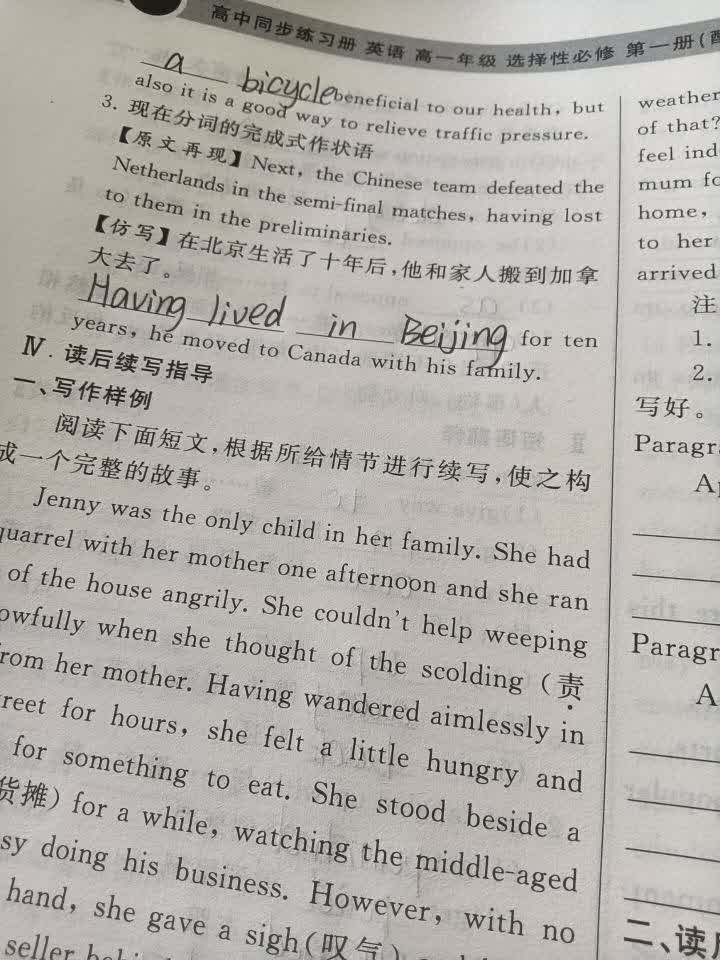 高中同步练习册 英语 高一年级 选择性必修 第一册(
a bicycle beneficial to our health, but
also it is a good way to relieve traffic pressure.
3. 现在分词的完成式作状语
【原文再现】Next, the Chinese team defeated the
Netherlands in the semi-final matches, having lost
to them in the preliminaries.
【仿写】在北京生活了十年后,他和家人搬到加拿
大去了。
Having lived in Beijing for ten
years, he moved to Canada with his family.
Ⅳ. 读后续写指导
一、写作样例
阅读下面短文,根据所给情节进行续写,使之构
成一个完整的故事。
Jenny was the only child in her family. She had
quarrel with her mother one afternoon and she ran
of the house angrily. She couldn't help weeping
owfully when she thought of the scolding (责
from her mother. Having wandered aimlessly in
reet for hours, she felt a little hungry and
for something to eat. She stood beside a
货摊) for a while, watching the middle-aged
sy doing his business. However, with no
hand, she gave a sigh(叹气)
seller
weather
of that?
feel ind
mum fo
home,
to her
arrived
注
1.
2.
写好。
Paragra
A
Paragr
A
二、读后